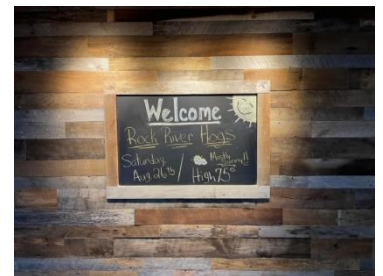 Welcome
Rock River Hogs
Saturday,
Aug 26th / Mostly Sunny!!
High 75°